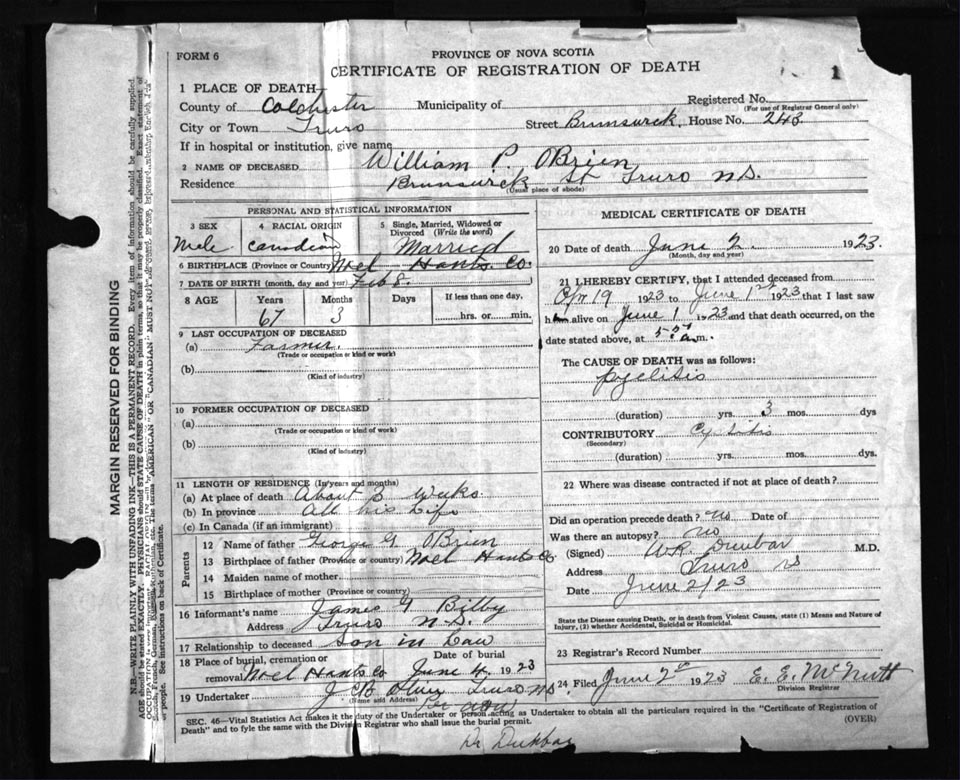 FORM 6
PROVINCE OF NOVA SCOTIA
CERTIFICATE OF REGISTRATION OF DEATH
1
1 PLACE OF DEATH
County of Colchester Municipality of Registered No.
(For use of Registrar General only)
City or Town Truro Street Brunswick, House No. 243
If in hospital or institution, give name
2 NAME OF DECEASED William P. OBrien
Residence Brunswick St Truro N.S.
(Usual place of abode)
PERSONAL AND STATISTICAL INFORMATION
3 SEX 4 RACIAL ORIGIN 5 Single, Married, Widowed or Divorced (Write the word)
Male Canadian Married
6 BIRTHPLACE (Province or Country) Noel, Hants. Co.
7 DATE OF BIRTH (month, day and year) Feb 8.
8 AGE Years Months Days If less than one day,
67 3 hrs. or min.
9 LAST OCCUPATION OF DECEASED
(a) Farmer.
(Trade or occupation or kind or work)
(b)
(Kind of industry)
10 FORMER OCCUPATION OF DECEASED
(a)
(Trade or occupation or kind of work)
(b)
(Kind of industry)
11 LENGTH OF RESIDENCE (In years and months)
(a) At place of death About Weeks
(b) In province All his Life
(c) In Canada (if an immigrant)
Parents
12 Name of father George G OBrien
13 Birthplace of father (Province or country) Noel Hants Co
14 Maiden name of mother
15 Birthplace of mother (Province or Country)
16 Informant's name James Bilby
Address Truro N.S.
17 Relationship to deceased Son in Law
18 Place of burial, cremation or Date of burial
removal Noel Hants Co June 4, 1923
19 Undertaker Truro NS
(Name and Address)
MEDICAL CERTIFICATE OF DEATH
20 Date of death June 2. 1923.
(Month, day and year)
21 I HEREBY CERTIFY, that I attended deceased from
19 1923 to June 1st 1923 that I last saw
h alive on June 1 1923 and that death occurred, on
date stated above, at 5 a.m.
The CAUSE OF DEATH was as follows:
pyelitis
(duration) yrs. 3 mos. dys
CONTRIBUTORY Cystitis
(Secondary)
(duration) yrs. mos. dys
22 Where was disease contracted if not at place of death?
Did an operation precede death? No Date of
Was there an autopsy? No
(Signed) W.R. Dunbar M.D.
Address Truro NS
Date June 2/23
State the Disease causing Death, or in death from Violent Causes, state (1) Means and Nature of
Injury, (2) whether Accidental, Suicidal or Homicidal.
23 Registrar's Record Number
24 Filed June 2nd 1923 E. E. McNutt
Division Registrar
SEC. 46—Vital Statistics Act makes it the duty of the Undertaker or person acting as Undertaker to obtain all the particulars required in the "Certificate of Registration of
Death" and to fyle the same with the Division Registrar who shall issue the burial permit. (OVER)
Dr Dunbar
MARGIN RESERVED FOR BINDING
N.B.—WRITE PLAINLY WITH UNFADING INK—THIS IS A PERMANENT RECORD. Every item of information should be carefully supplied.
AGE should be stated EXACTLY. PHYSICIANS should STATE CAUSE OF DEATH in plain terms, so that it may be properly classified. Exact statement of
or people. See instructions on back of Certificate.